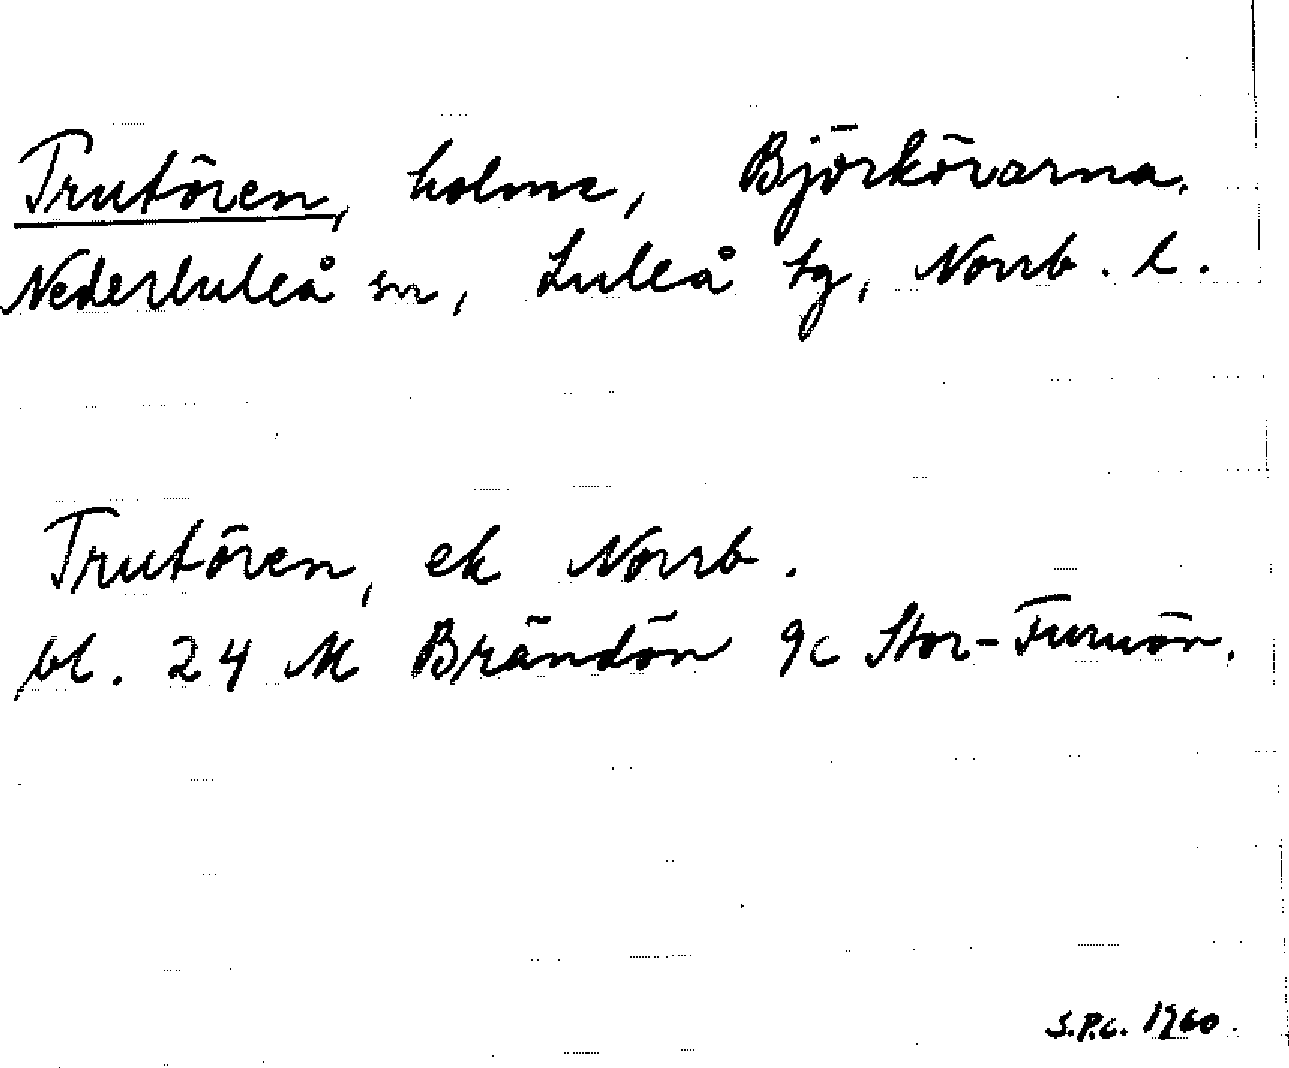 Trutören, holme, Björkörarna.
Nederluleå sn, Luleå tg, Norrb. l.
Trutören, ek Norrb.
bl. 24 M Brändön 9c Stor-Furuön.
S.P.C. 1960.